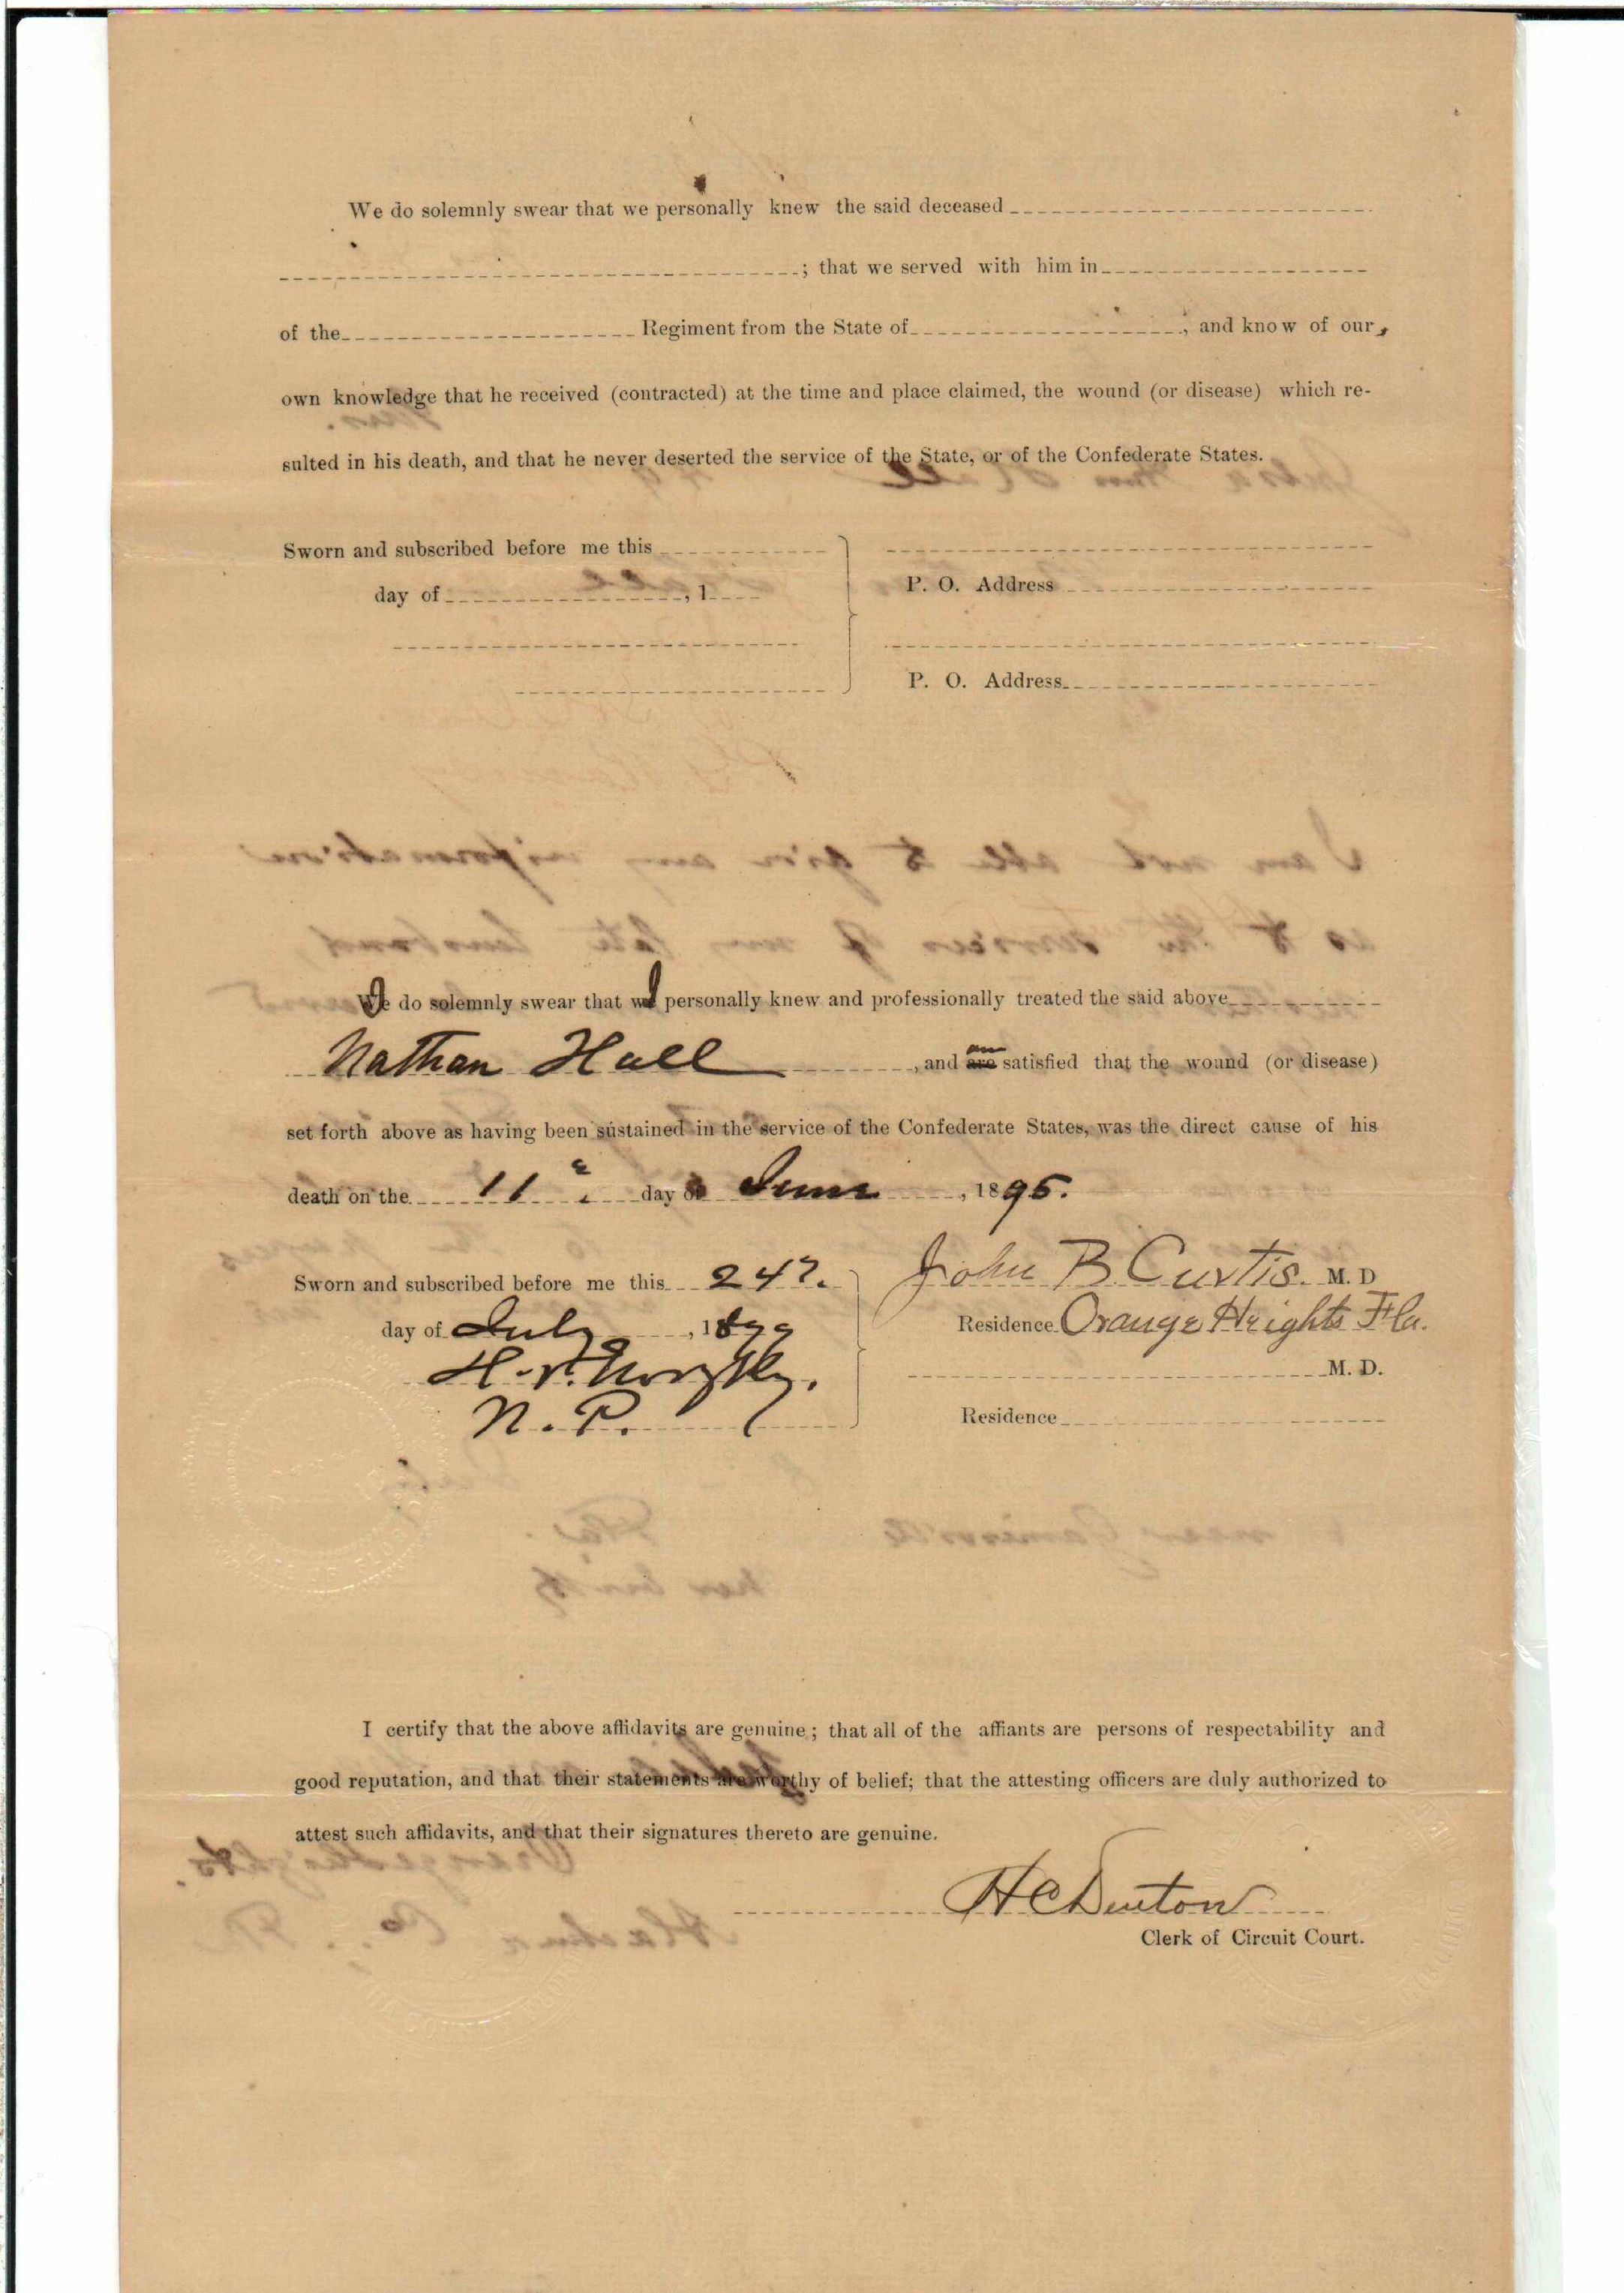 We do solemnly swear that we personally knew the said deceased
; that we served with him in
of the Regiment from the State of , and know of our
own knowledge that he received (contracted) at the time and place claimed, the wound (or disease) which re-
sulted in his death, and that he never deserted the service of the State, or of the Confederate States.
Sworn and subscribed before me this
day of , 1
P. O. Address
P. O. Address
I do solemnly swear that I personally knew and professionally treated the said above
Nathan Hall , and am satisfied that the wound (or disease)
set forth above as having been sustained in the service of the Confederate States, was the direct cause of his
death on the 11 day of June , 1895.
Sworn and subscribed before me this 24
day of July , 1899
N. P.
John B. Curtis. M. D
Residence Orange Heights Fla.
M. D.
Residence
I certify that the above affidavits are genuine; that all of the affiants are persons of respectability and
good reputation, and that their statements are worthy of belief; that the attesting officers are duly authorized to
attest such affidavits, and that their signatures thereto are genuine.
H C Denton
Clerk of Circuit Court.